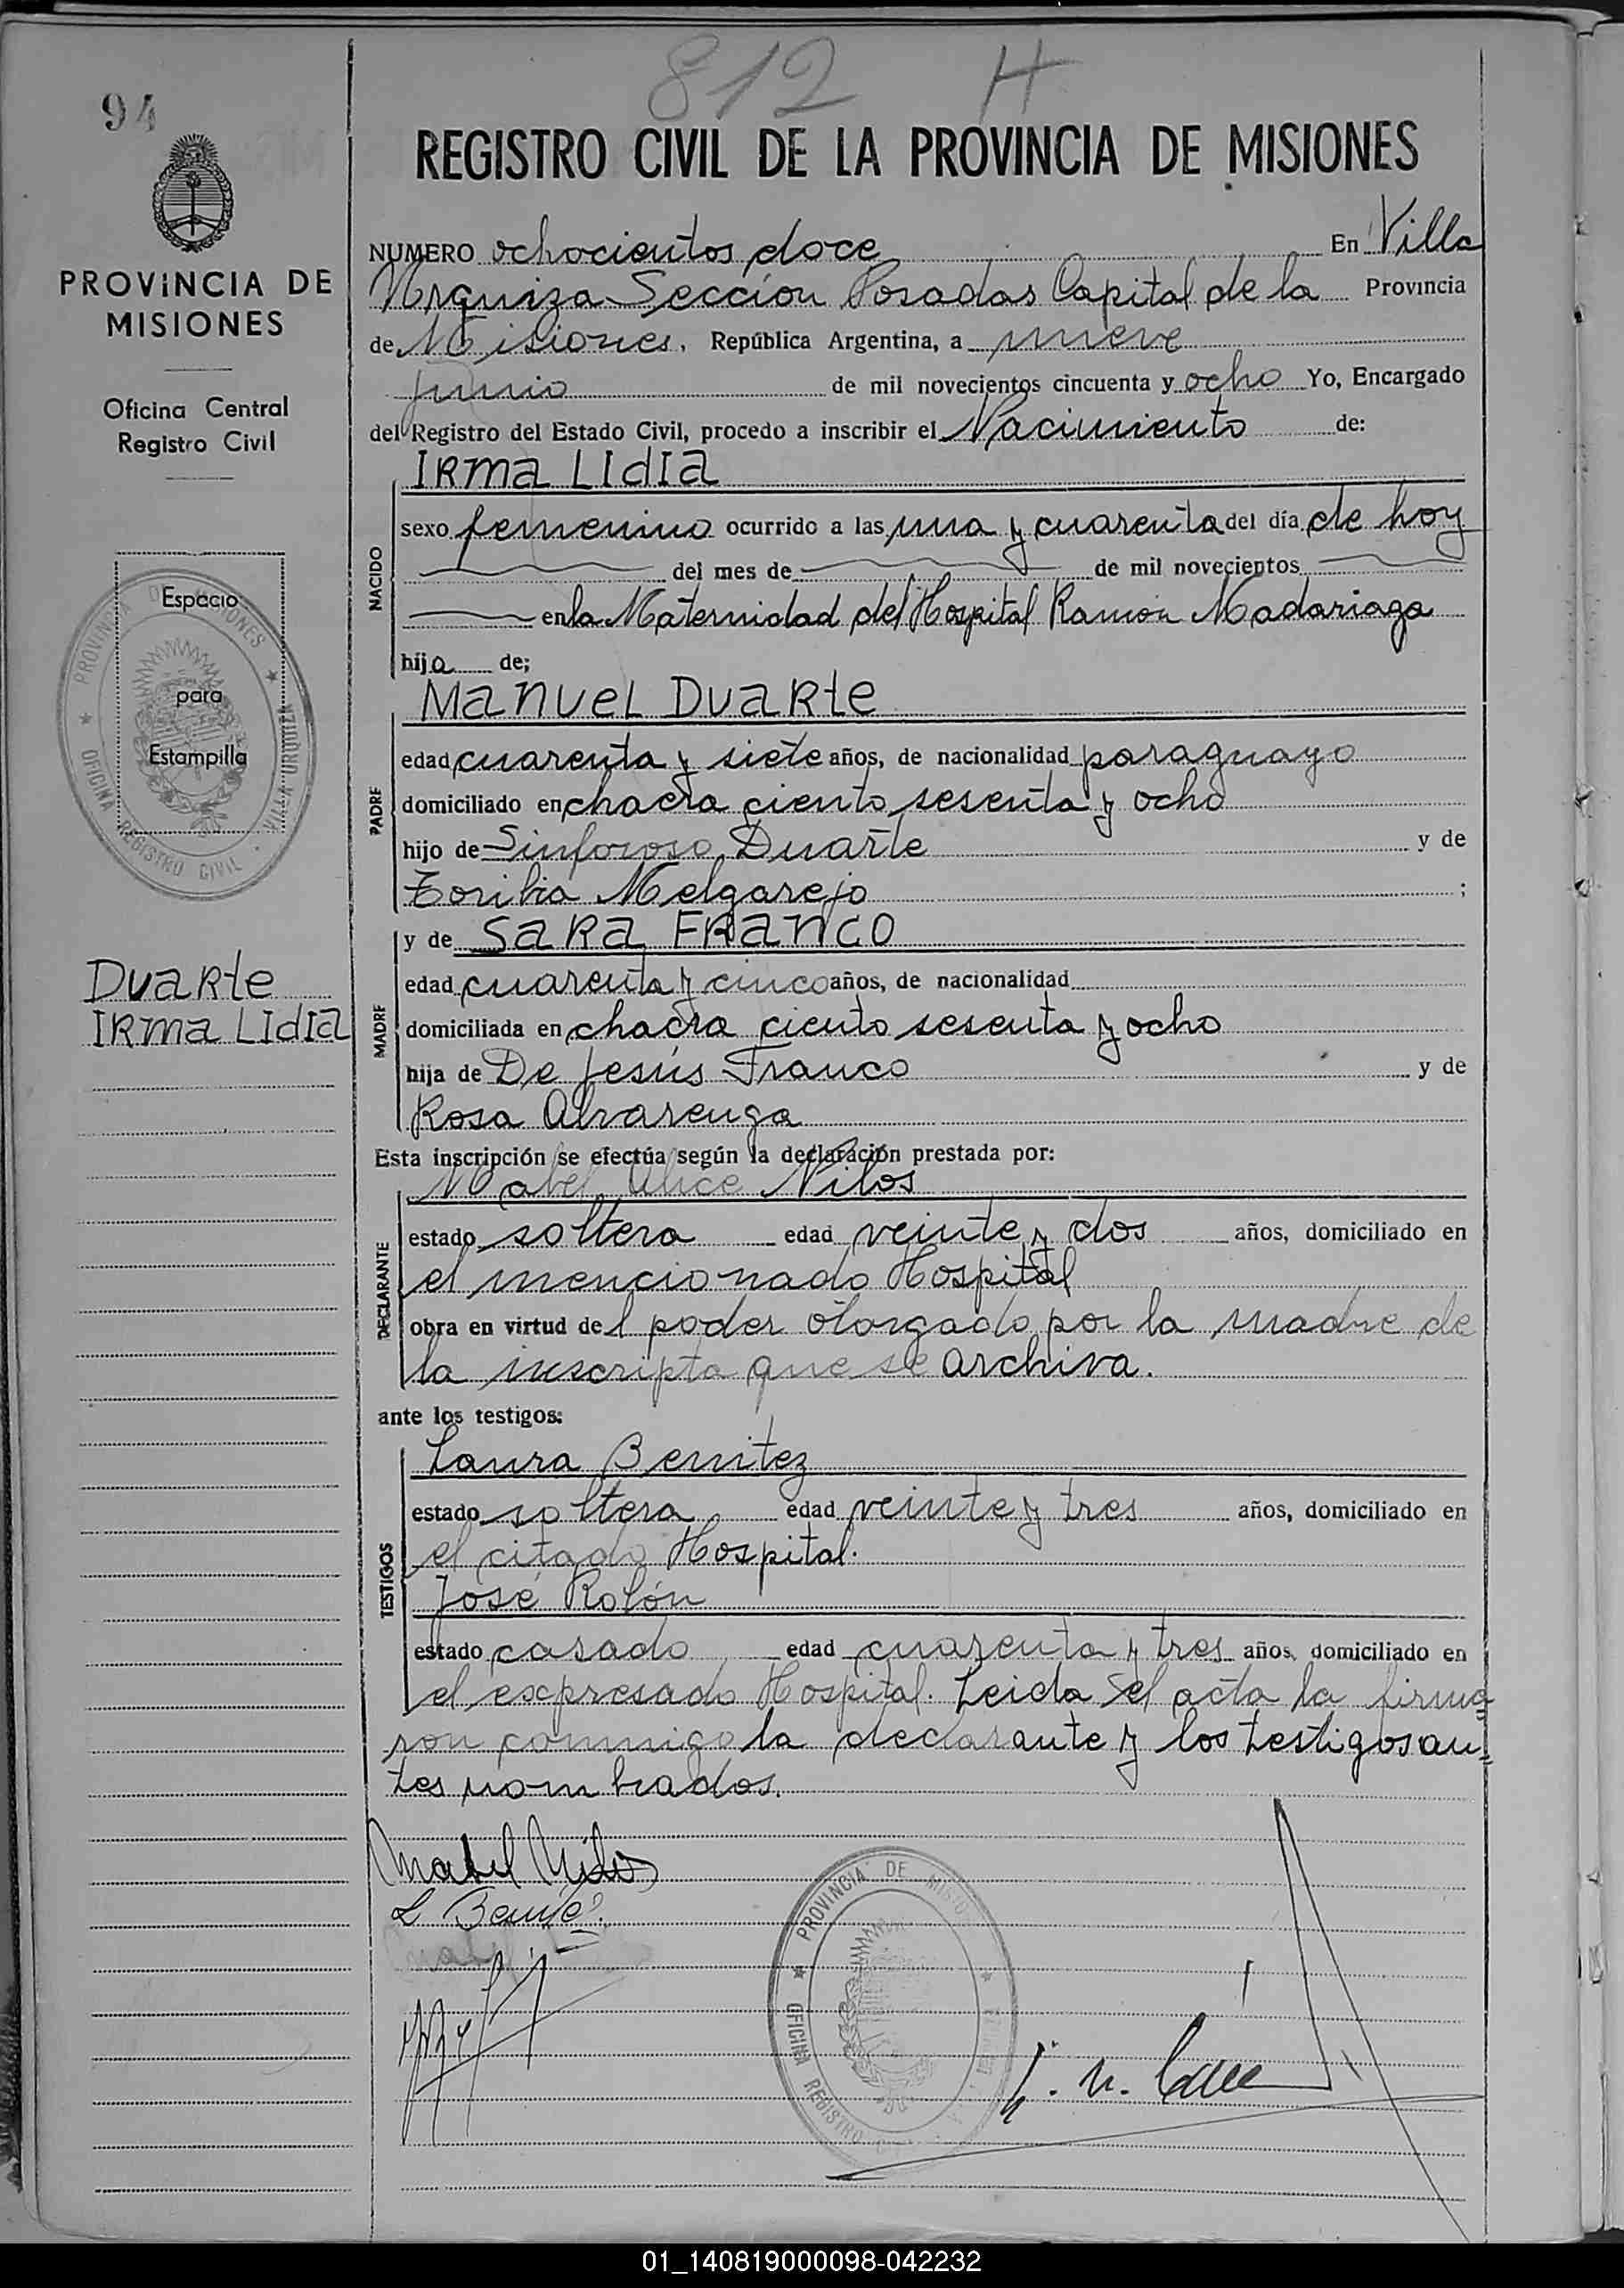 812 H
94
REGISTRO CIVIL DE LA PROVINCIA DE MISIONES
PROVINCIA DE
MISIONES
Oficina Central
Registro Civil
Espacio
para
Estampilla
PROVINCIA DE MISIONES
OFICINA REGISTRO CIVIL · VILLA URQUIZA
Duarte
Irma Lidia
NUMERO ochocientos doce En Villa
Urquiza Sección Posadas Capital de la Provincia
de Misiones, República Argentina, a nueve
junio de mil novecientos cincuenta y ocho Yo, Encargado
del Registro del Estado Civil, procedo a inscribir el Nacimiento de:
Irma Lidia
NACIDO
sexo femenino ocurrido a las una y cuarenta del día de hoy
del mes de de mil novecientos
en la Maternidad del Hospital Ramón Madariaga
hija de;
Manuel Duarte
PADRE
edad cuarenta y siete años, de nacionalidad paraguayo
domiciliado en chacra ciento sesenta y ocho
hijo de Sinforoso Duarte y de
Zorilia Melgarejo ;
y de Sara Franco
MADRE
edad cuarenta y cinco años, de nacionalidad
domiciliada en chacra ciento sesenta y ocho
hija de De Jesús Franco y de
Rosa Alvarenga
Esta inscripción se efectúa según la declaración prestada por:
Mabel Alice Nilos
DECLARANTE
estado soltera edad veinte y dos años, domiciliado en
el mencionado Hospital
obra en virtud del poder otorgado por la madre de
la inscripta que se archiva.
ante los testigos:
Laura Benitez
TESTIGOS
estado soltera edad veinte y tres años, domiciliado en
el citado Hospital.
José Rolón
estado casado edad cuarenta y tres años, domiciliado en
el expresado Hospital. Leida el acta la firma=
ron conmigo la declarante y los testigos an=
tes nombrados.
Mabel Nilos
L Benite
PROVINCIA DE MISIONES
OFICINA REGISTRO
01_140819000098-042232